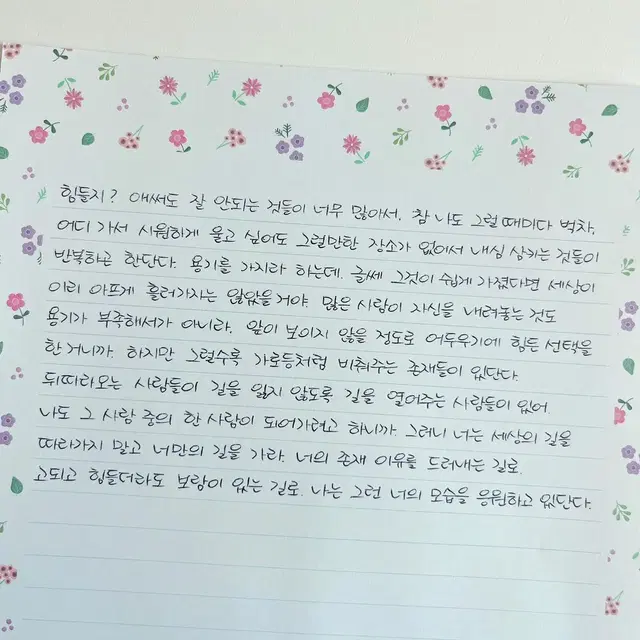 힘들지? 애써도 잘 안되는 것들이 너무 많아서. 참 나도 그럴 때마다 벅차.
어디 가서 시원하게 울고 싶어도 그럴만한 장소가 없어서 내심 삼키는 것들이
반복하곤 한단다. 용기를 가지라 하는데. 글쎄 그것이 쉽게 가졌다면 세상이
이리 아프게 흘러가지는 않았을거야. 많은 사람이 자신을 내려놓는 것도
용기가 부족해서가 아니라. 앞이 보이지 않을 정도로 어두우기에 힘든 선택을
한 거니까. 하지만 그럴수록 가로등처럼 비춰주는 존재들이 있단다.
뒤따라오는 사람들이 길을 잃지 않도록 길을 열어주는 사람들이 있어.
나도 그 사람 중의 한 사람이 되어가려고 하니까. 그러니 너는 세상의 길을
따라가지 말고 너만의 길을 가라. 너의 존재 이유를 드러내는 길로.
고되고 힘들더라도 보람이 있는 길로. 나는 그런 너의 모습을 응원하고 있단다.